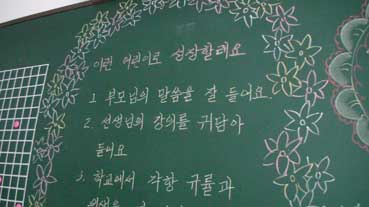 이런 어린이로 성장할래요
1. 부모님의 말씀을 잘 들어요.
2. 선생님의 강의를 귀담아
들어요
3. 학교에서 각항 규률과